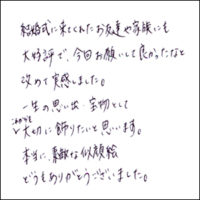 結婚式に来てくれたお友達や家族にも
大好評で、今回お願いして良かったなと
改めて実感しました。
一生の思い出、宝物として
これからも
大切に飾りたいと思います。
本当に、素敵な似顔絵
どうもありがとうございました。